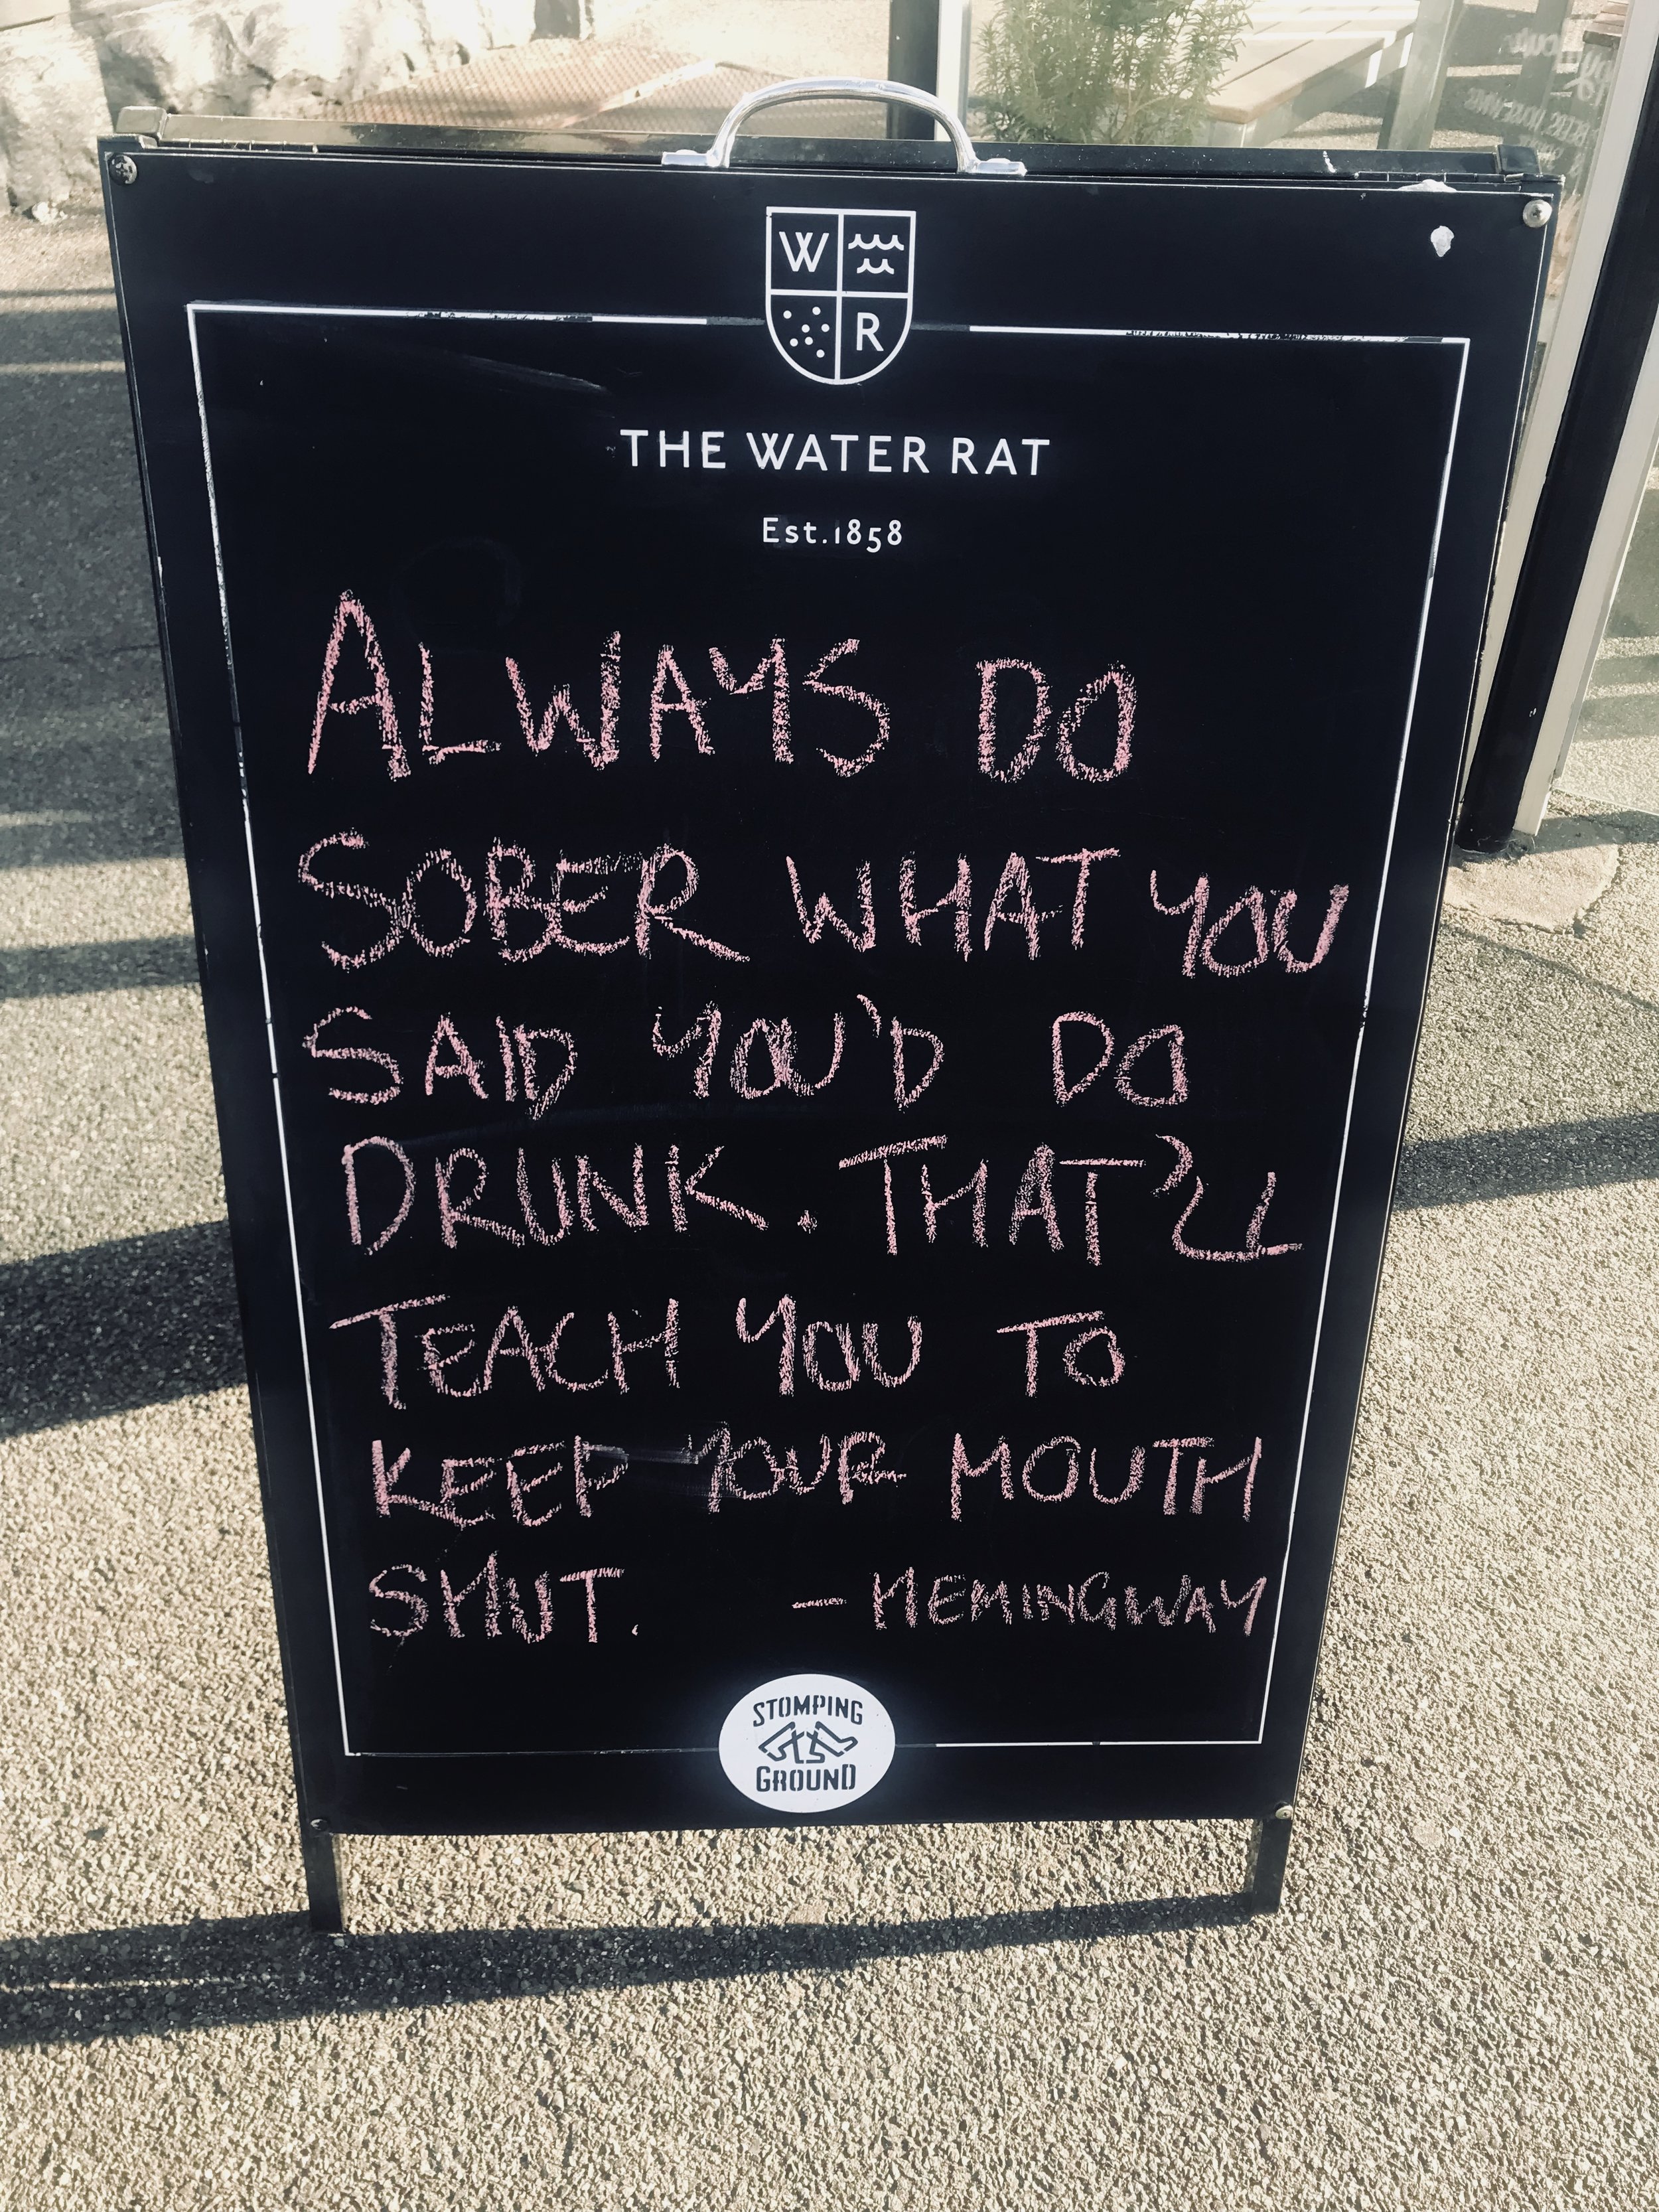 W
R
THE WATER RAT
Est.1858
ALWAYS DO
SOBER WHAT YOU
SAID YOU'D DO
DRUNK. THAT'LL
TEACH YOU TO
KEEP YOUR MOUTH
SHUT. - HEMINGWAY
STOMPING
GROUND